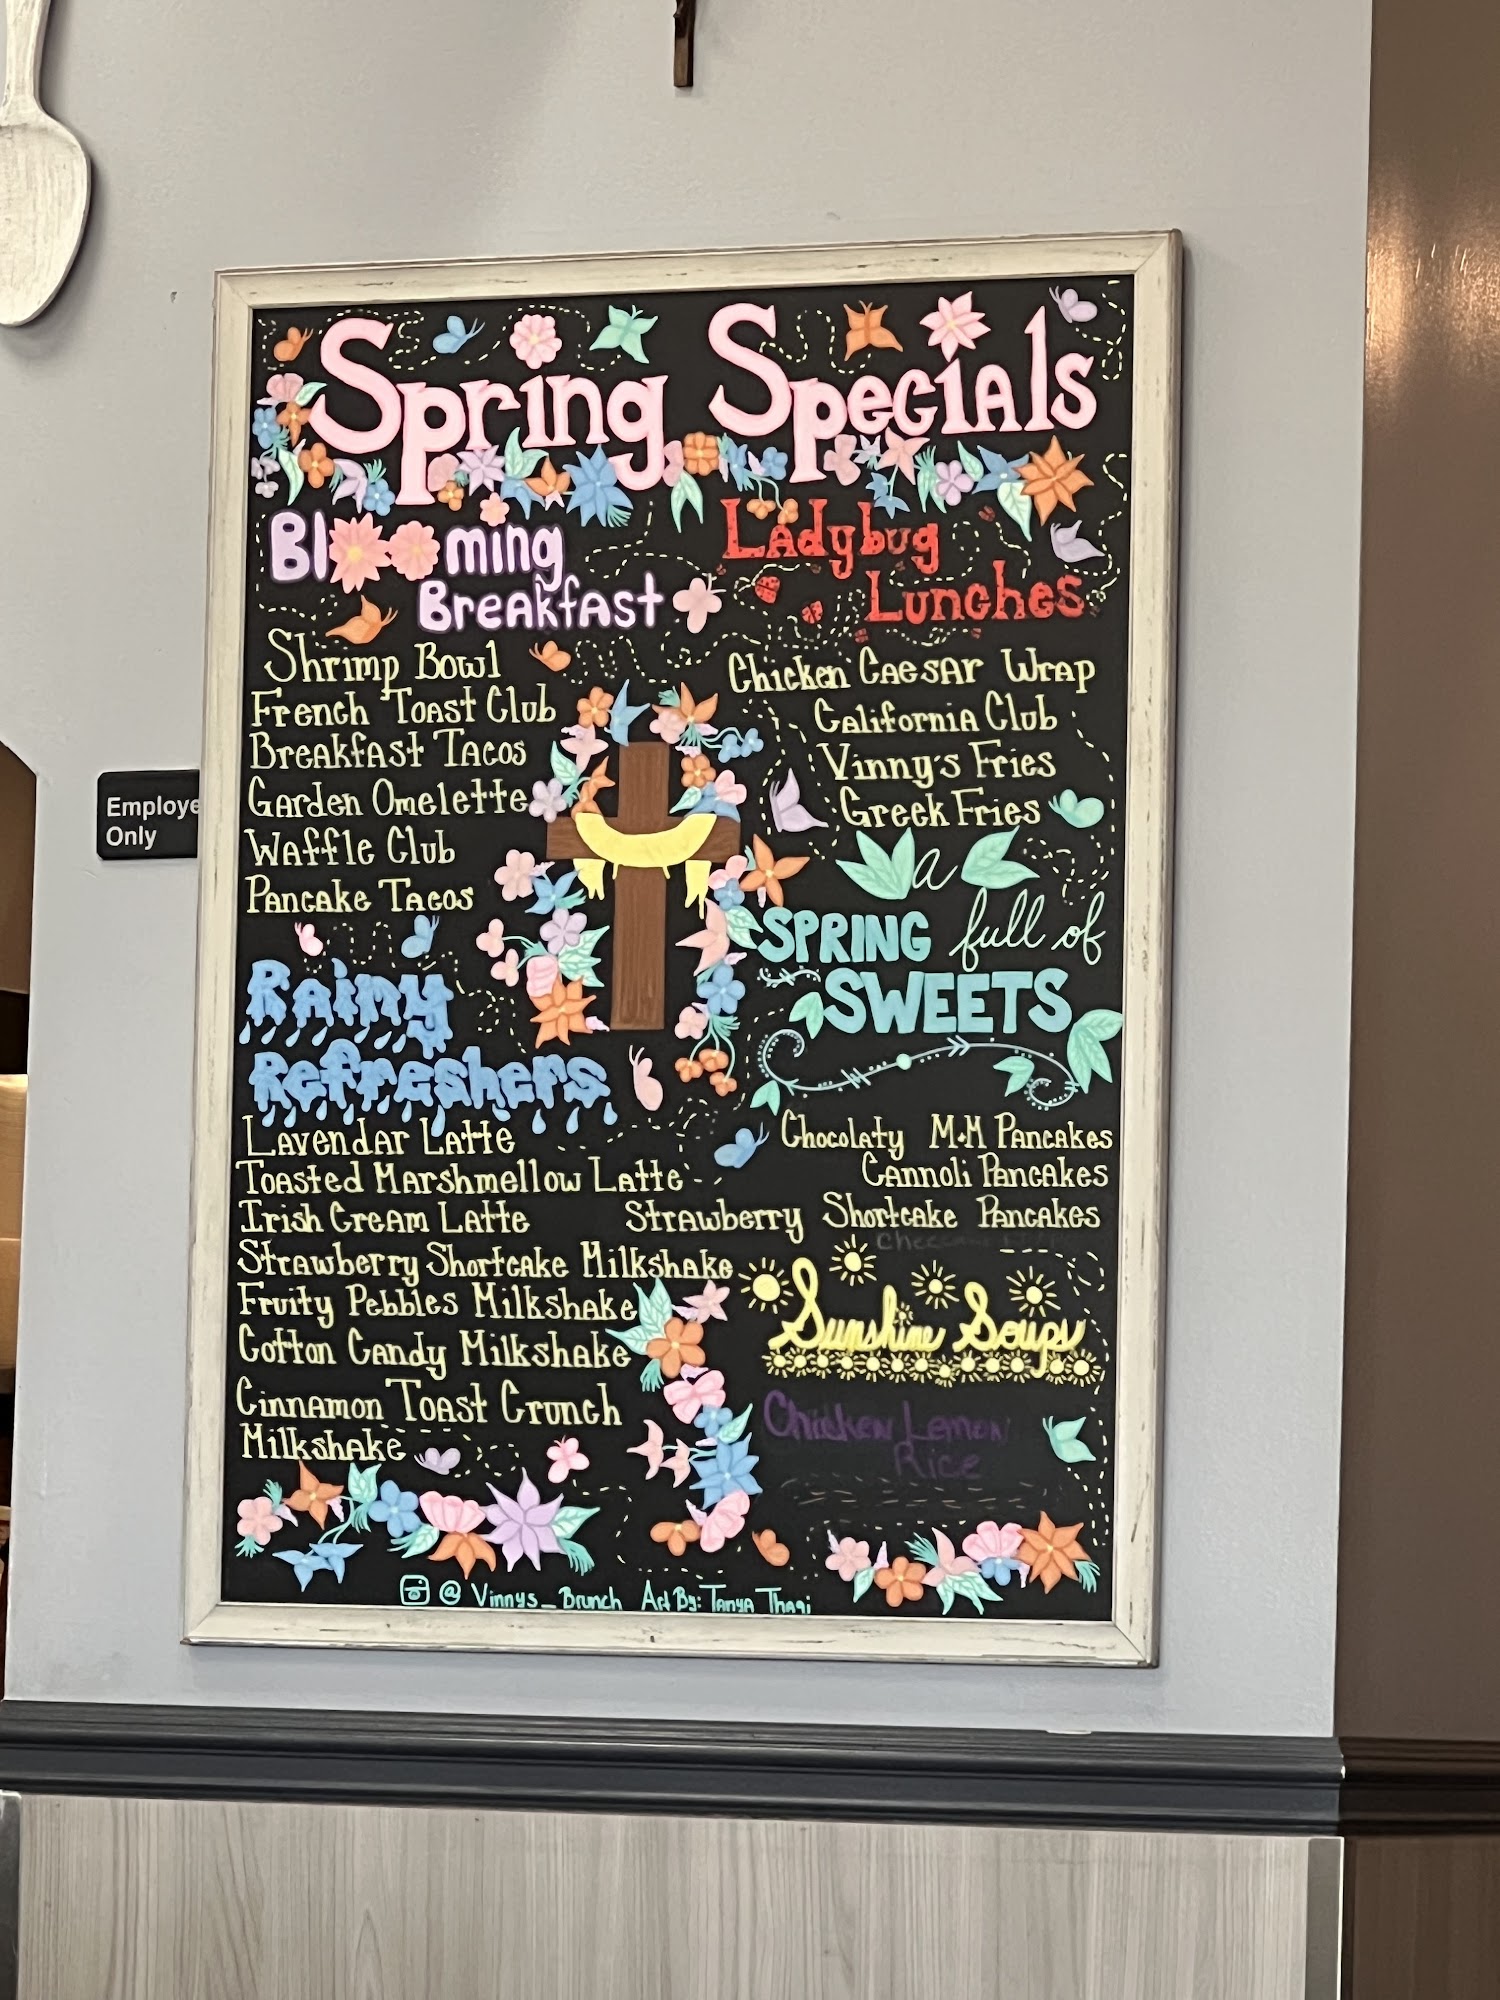 Spring Specials
Blooming
Breakfast
Shrimp Bowl
French Toast Club
Breakfast Tacos
Garden Omelette
Waffle Club
Pancake Tacos
Ladybug
Lunches
Chicken Caesar Wrap
California Club
Vinny's Fries
Greek Fries
a
SPRING full of
SWEETS
Chocolaty M&M Pancakes
Cannoli Pancakes
Strawberry Shortcake Pancakes
Rainy
Refreshers
Lavendar Latte
Toasted Marshmellow Latte
Irish Cream Latte
Strawberry Shortcake Milkshake
Fruity Pebbles Milkshake
Cotton Candy Milkshake
Cinnamon Toast Crunch
Milkshake
Sunshine Soups
Chicken Lemon
Rice
@ Vinnys_Brunch Art By: Tanya Thagi
Employe
Only